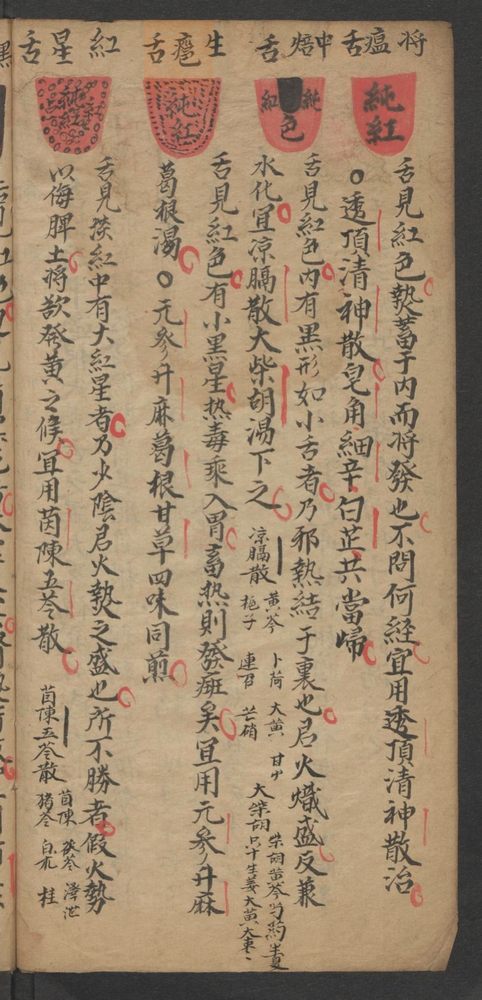 将瘟舌
純紅
舌見紅色熱蓄于内而将發也不問何經宜用透頂清神散治
○透頂清神散皂角細辛白芷共當帰
中焙舌
純紅色
舌見紅色内有黒形如小舌者乃邪熱結于裏也君火熾盛反兼
水化宜凉膈散大柴胡湯下之
凉膈散 黄芩 卜荷 大黄 甘中
栀子 連召 芒硝
大柴胡 柴胡 黄芩 芍药 半夏
只十 生姜 大黄 大枣
生瘟舌
純紅
舌見紅色有小黒星热毒乘入胃畜热則發斑矣宜用元参升麻
葛根湯○元参升麻葛根甘草四味同煎
紅星舌
純紅
舌見淡紅中有大紅星者乃少陰君火熱之盛也所不勝者假火勢
以侮脾土将欲發黄之候宜用茵陳五苓散
茵陳五苓散 茵陳 茯苓 澤泻
猪苓 白朮 桂